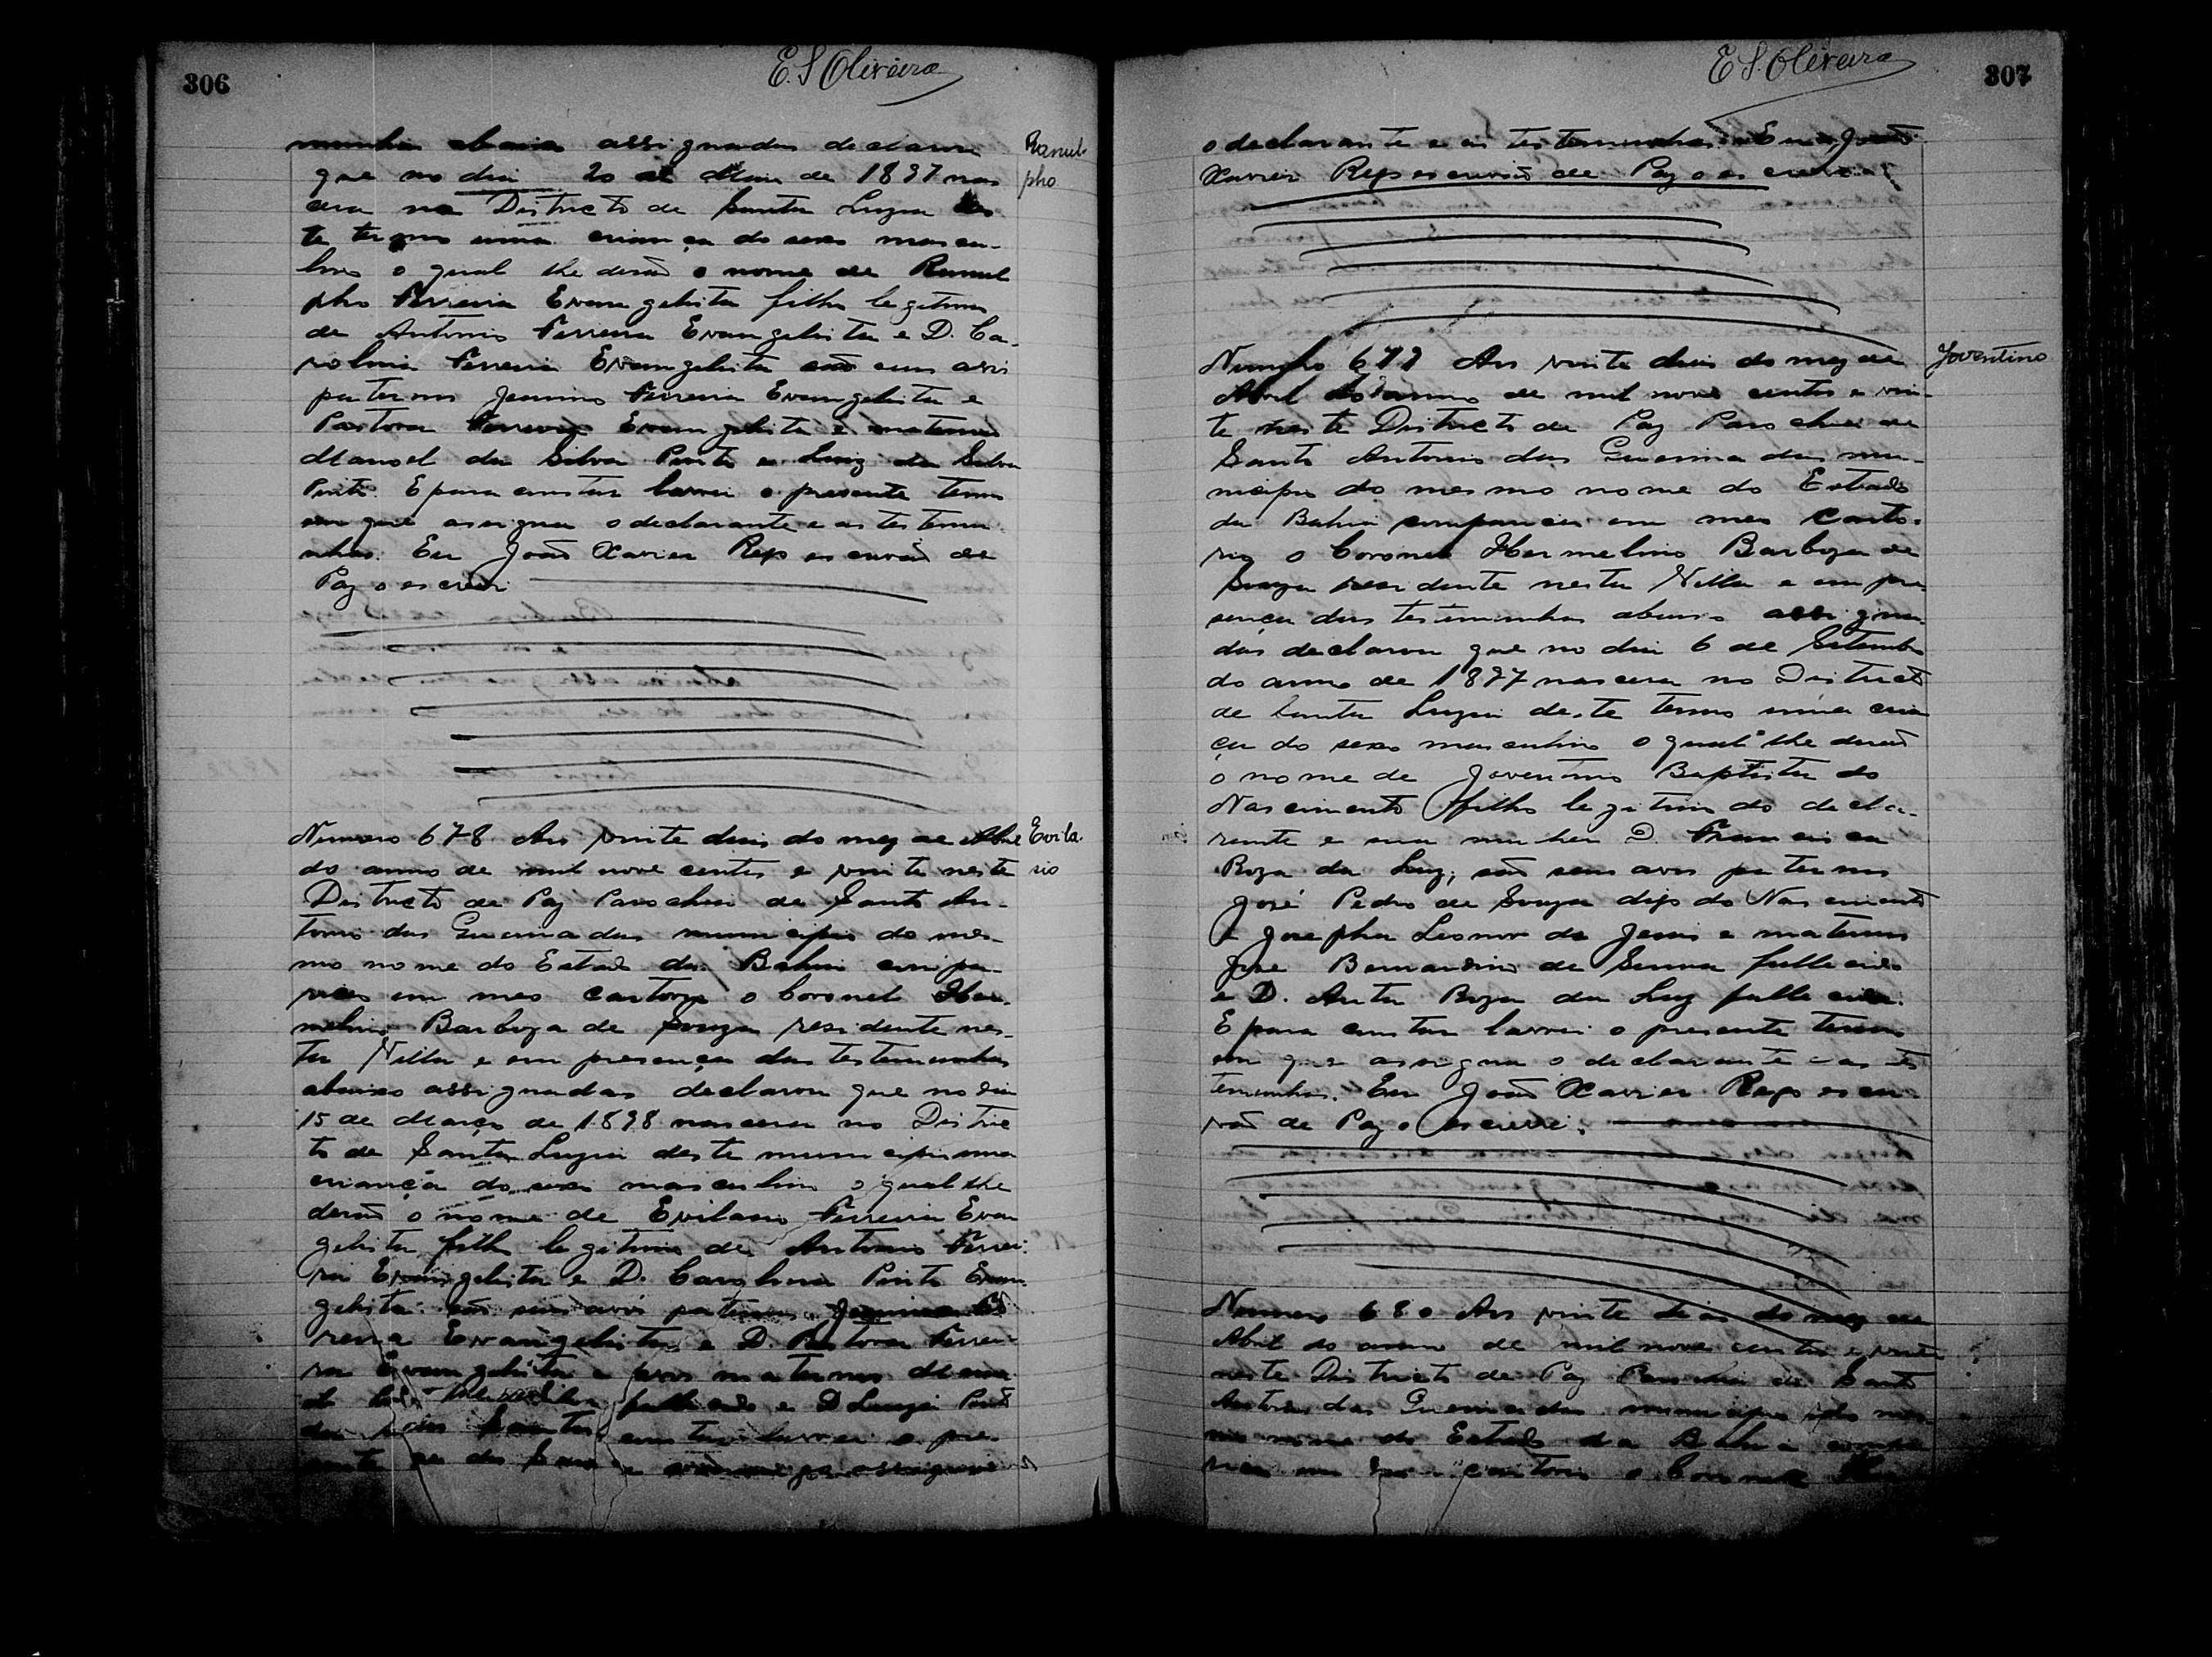 306
E. S. Oliveira
munhas abaixo assignadas declarou
que no dia 20 de Maio de 1897 nas
cera no Districto de Santa Luzia des
te termo uma criança do sexo mascu-
lino o qual lhe derão o nome de Ranul
pho Ferreira Evangelista filho legitimo
de Antonio Ferreira Evangelista e D. Ca-
rolina Ferreira Evangelista são seus avós
paternos Januino Ferreira Evangelista e
Pastora Ferreira Evangelista e maternos
Manoel da Silva Pinto e Luiz da Silva
Pinto. E para constar lavrei o presente termo
em que assigna o declarante e as testemu
nhas. Eu João Xavier Rego escrivão de
Paz o escrevi
Ranul-
pho
Numero 678 Aos vinte dois do mez de Abril
do anno de mil nove centos e vinte neste
Districto de Paz Parochia de Santo An-
tonio das Queimadas municipio do mes-
mo nome do Estado da Bahia compa-
receu em meo cartorio o Coronel Her-
melino Barboza de Souza residente nes-
ta Villa e em presença das testemunhas
abaixo assignadas declarou que no dia
15 de Março de 1898 nascera no Distric
to de Santa Luzia deste municipio uma
criança do sexo masculino o qual lhe
derão o nome de Evilasio Ferreira Evan
gelista filho legitimo de Antonio Ferrei-
ra Evangelista e D. Carolina Pinto Evan
gelista são seus avós paternos
Evangelista e D. Pastora Ferrei-
ra Evangelista e avos maternos Mano
el fallecido e D. Luiza Pinto
constar lavrei o pre-
Evila-
sio
E. S. Oliveira
307
o declarante e as testemunhas. Eu João
Xavier Rego escrivão de Paz o escrevi
Numero 679 Aos vinte dois do mez de
Abril do anno de mil nove centos e vin-
te neste Districto de Paz Parochia de
Santo Antonio das Queimadas mu-
nicipio do mesmo nome do Estado
da Bahia compareceu em meo Carto-
rio o Coronel Hermelino Barboza de
Souza residente nesta Villa e em pre-
sença das testemunhas abaixo assigna-
das declarou que no dia 6 de Setembro
do anno de 1897 nascera no Districto
de Santa Luzia deste termo uma crian
ça do sexo masculino o qual lhe derão
o nome de Joventino Baptista do
Nascimento filho legitimo do decla-
rante e sua mulher D. Francisca
Roza da Luz; são seus avos paternos
José Pedro de Souza digo do Nascimento
e Josepha Leonor de Jesus e maternos
José Bernardino de Senna fallecido
e D. Anta Roza da Luz fallecida.
E para constar lavrei o presente termo
em que assigna o declarante e as tes
temunhas. Eu João Xavier Rego escri-
vão de Paz o escrevi.
Joventino
Numero 680 Aos vinte dois do mez de
Abril do anno de mil nove centos e vinte
neste Districto de Paz Parochia de Santo
Antonio das Queimadas municipio do mes-
mo nome do Estado da Bahia compa
receu em meo cartorio o Coronel Her